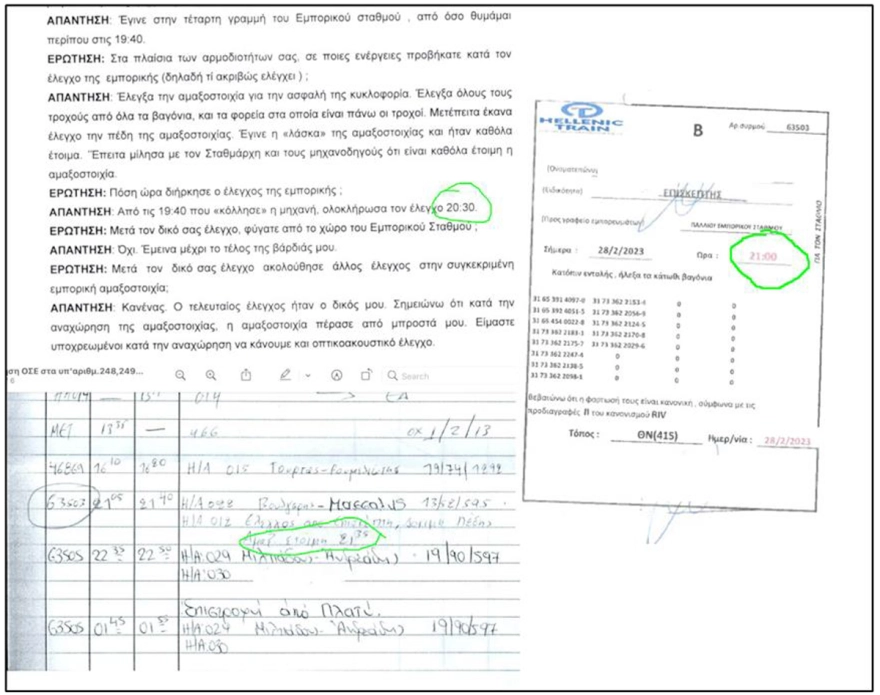 ΑΠΑΝΤΗΣΗ: Έγινε στην τέταρτη γραμμή του Εμπορικού σταθμού , από όσο θυμάμαι
περίπου στις 19:40.
ΕΡΩΤΗΣΗ: Στα πλαίσια των αρμοδιοτήτων σας, σε ποιες ενέργειες προβήκατε κατά τον
έλεγχο της εμπορικής (δηλαδή τί ακριβώς ελέγχει ) ;
ΑΠΑΝΤΗΣΗ: Έλεγξα την αμαξοστοιχία για την ασφαλή της κυκλοφορία. Έλεγξα όλους τους
τροχούς από όλα τα βαγόνια, και τα φορεία στα οποία είναι πάνω οι τροχοί. Μετέπειτα έκανα
έλεγχο την πέδη της αμαξοστοιχίας. Έγινε η «λάσκα» της αμαξοστοιχίας και ήταν καθόλα
έτοιμη. Έπειτα μίλησα με τον Σταθμάρχη και τους μηχανοδηγούς ότι είναι καθόλα έτοιμη η
αμαξοστοιχία.
ΕΡΩΤΗΣΗ: Πόση ώρα διήρκησε ο έλεγχος της εμπορικής ;
ΑΠΑΝΤΗΣΗ: Από τις 19:40 που «κόλλησε» η μηχανή, ολοκλήρωσα τον έλεγχο 20:30.
ΕΡΩΤΗΣΗ: Μετά τον δικό σας έλεγχο, φύγατε από το χώρο του Εμπορικού Σταθμού ;
ΑΠΑΝΤΗΣΗ: Όχι. Έμεινα μέχρι το τέλος της βάρδιάς μου.
ΕΡΩΤΗΣΗ: Μετά τον δικό σας έλεγχο ακολούθησε άλλος έλεγχος στην συγκεκριμένη
εμπορική αμαξοστοιχία;
ΑΠΑΝΤΗΣΗ: Κανένας. Ο τελευταίος έλεγχος ήταν ο δικός μου. Σημειώνω ότι κατά την
αναχώρηση της αμαξοστοιχίας, η αμαξοστοιχία πέρασε από μπροστά μου. Είμαστε
υποχρεωμένοι κατά την αναχώρηση να κάνουμε και οπτικοακουστικό έλεγχο.
ση ΟΣΕ στα υπ'αριθμ.248,249...
Search
ΜΕΤ 13 35 — 466 1/2/13
46869 16 10 Η/Α 015 19/74/1898
63503 21 05 21 40 Η/Α 022
Η/Α 012 Έλεγχος από επισκέπτη, δοκιμή Πέδης
Αμαξ έτοιμη 21 35
63505 22 22 50 Η/Α:029 Μιλτιάδου- 19/90/597
Η/Α:030
Επιστροφή από Πλατύ.
63505 01 45 01 Η/Α:029 Μιλτιάδου- 19/90/597
Η/Α:030
HELLENIC
TRAIN
Β
Αρ συρμού 63503
(Ονοματεπώνυμο)
(Ειδικότητα) ΕΠΙΣΚΕΠΤΗΣ
(Προς γραφείο εμπορευμάτων) ΠΑΛΑΙΟΥ ΕΜΠΟΡΙΚΟΥ ΣΤΑΘΜΟΥ
ΓΙΑ ΤΟΝ ΣΤΑΘΜΟ
Σήμερα : 28/2/2023 Ώρα : 21:00
Κατόπιν εντολής , ήλεξα τα κάτωθι βαγόνια
31 65 391 4097-0 31 73 362 2153-4 0 0
31 65 392 6051-5 31 73 362 2056-9 0 0
31 65 454 0022-8 31 73 362 2124-5 0 0
31 73 362 2183-1 31 73 362 2170-8 0 0
31 73 362 2175-7 31 73 362 2029-6 0 0
31 73 362 2247-4 0 0 0
31 73 362 2138-5 0 0 0
31 73 362 2098-1 0 0 0
Βεβαιώνω ότι η φόρτωσή τους είναι κανονική , σύμφωνα με τις
προδιαγραφές Π του κανονισμού RIV
Τόπος : ΘΝ(415) Ημερ/νία : 28/2/2023